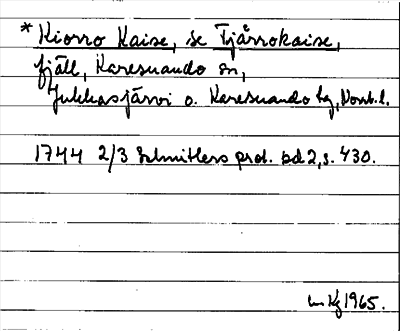 * Kiorro Kaise, se Tjårrokaise,
fjäll, Karesuando sn,
Jukkasjärvi o. Karesuando tg, Norrb. l.
1744 2/3 Schnitlers prot. bd 2, s. 430.
1965.